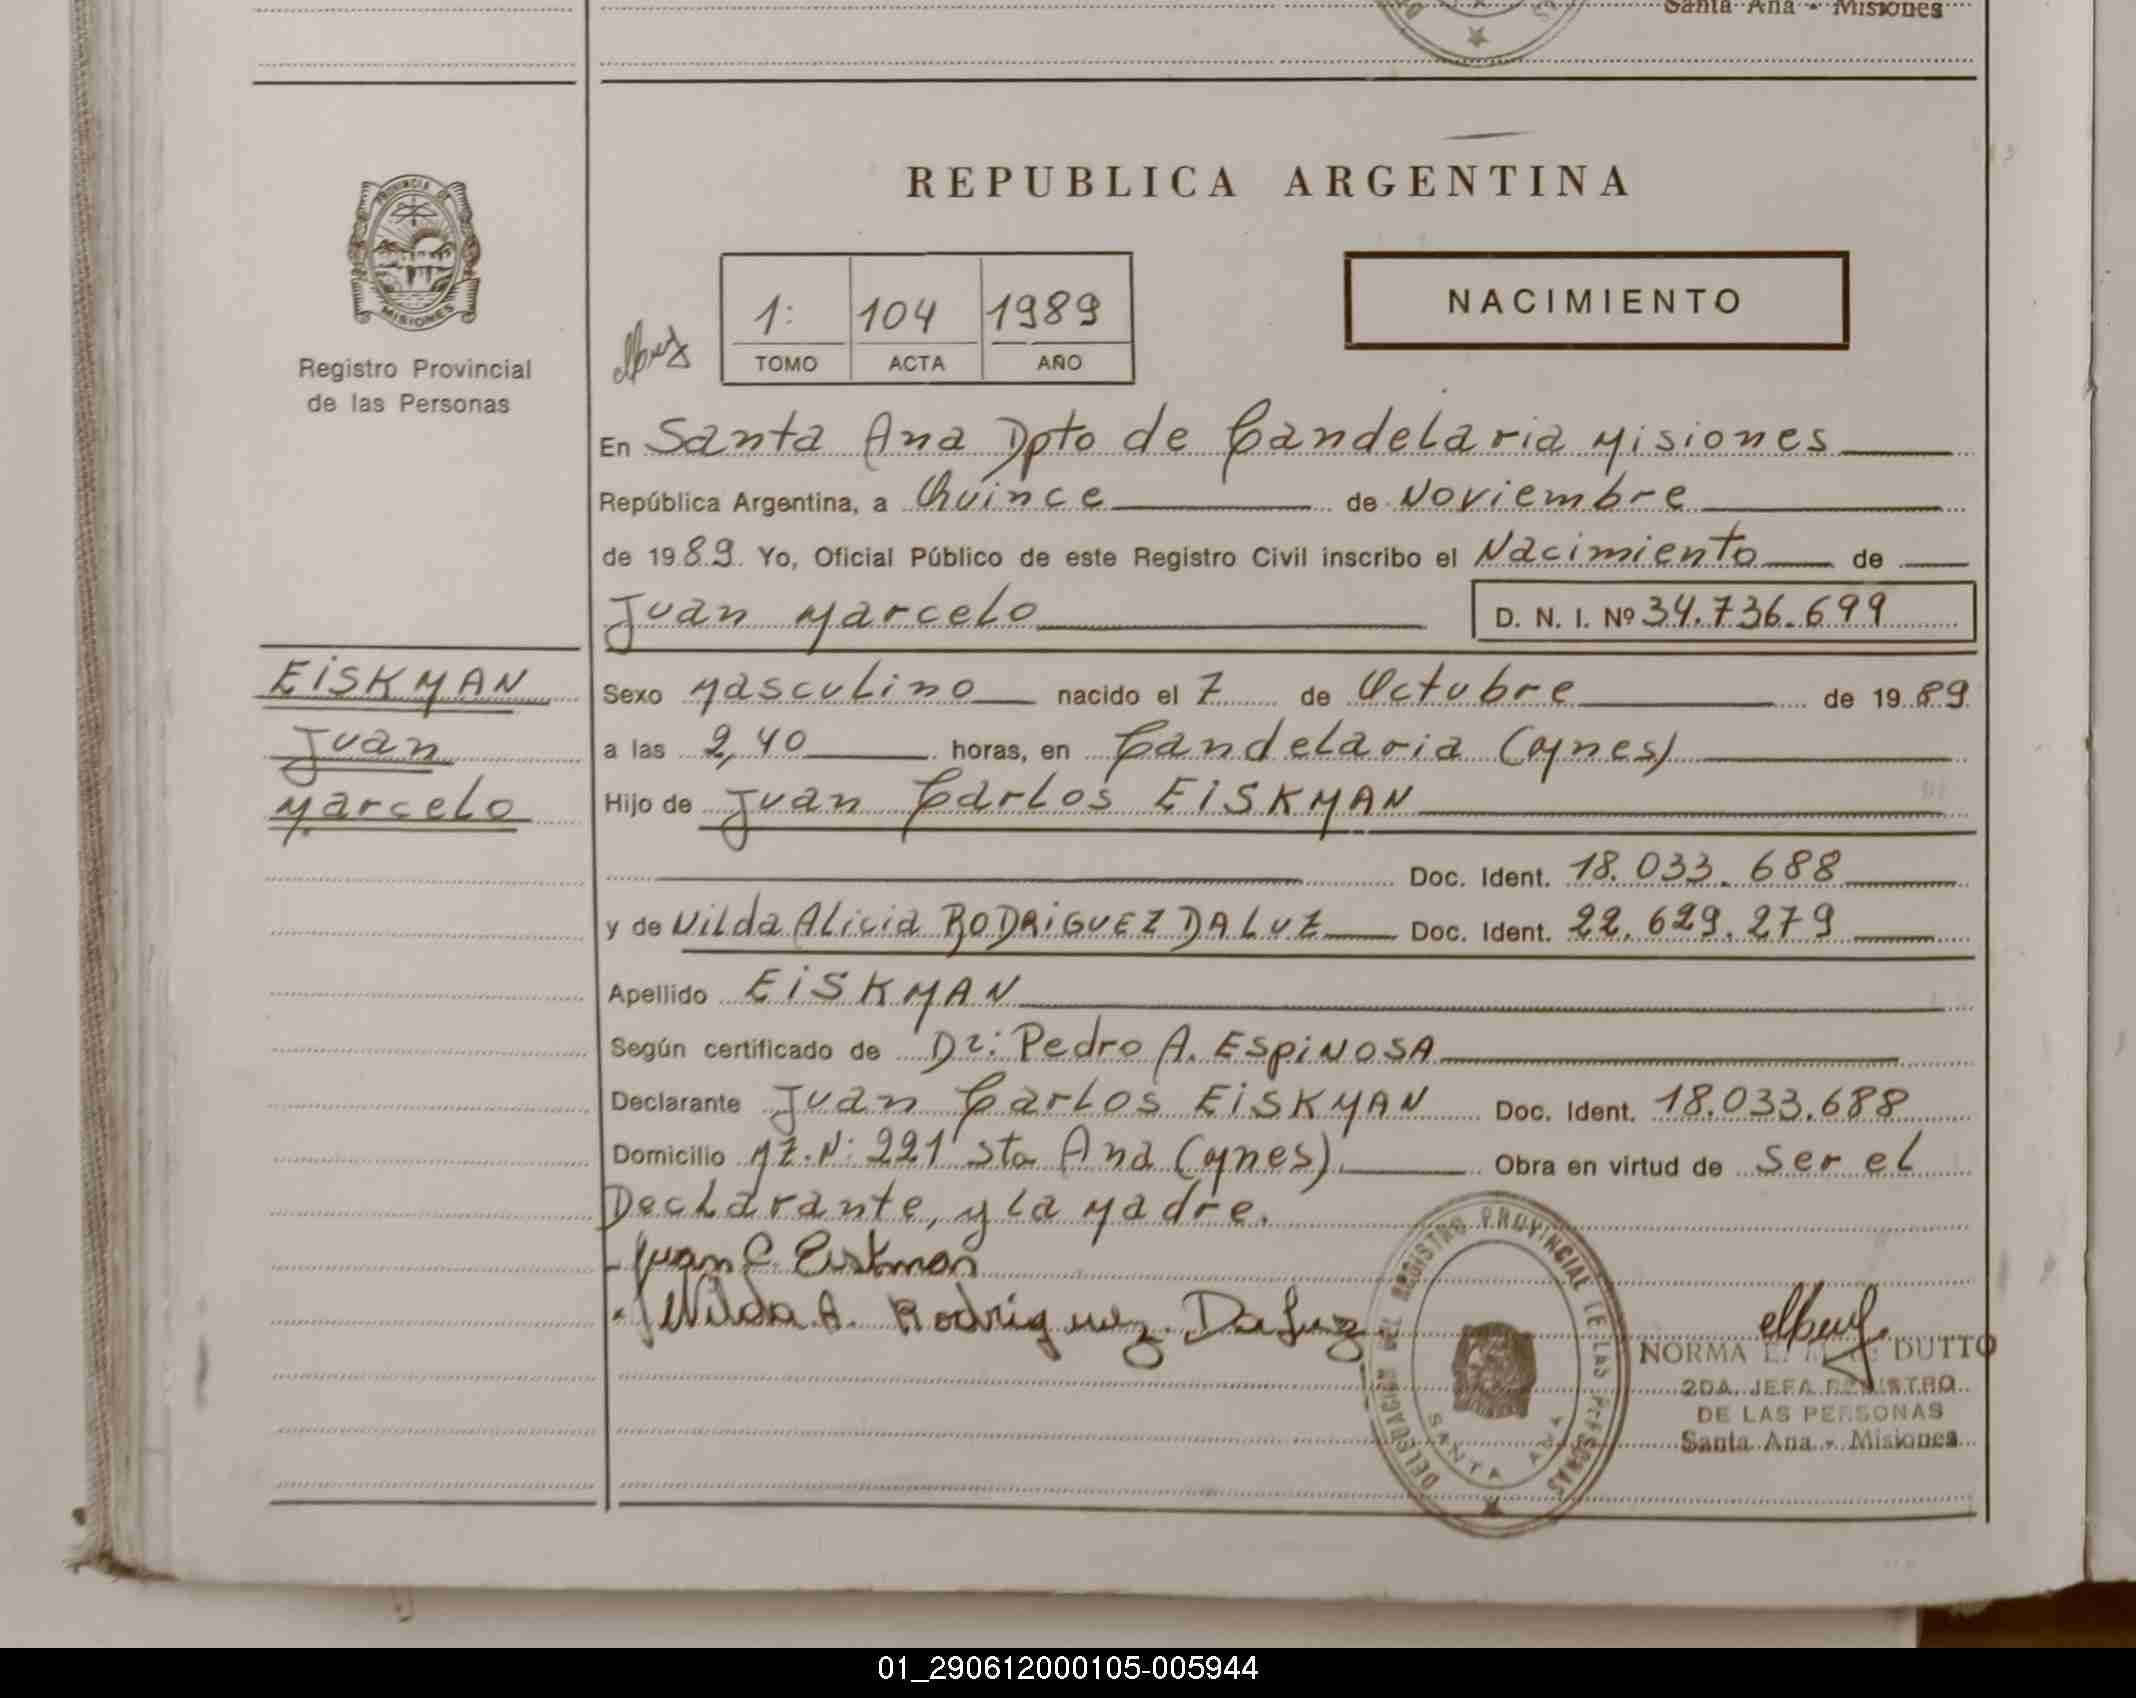 Santa Ana - Misiones
REPUBLICA ARGENTINA
PROVINCIA DE
MISIONES
Registro Provincial
de las Personas
1: 104 1989
TOMO ACTA AÑO
NACIMIENTO
En Santa Ana Dpto de Candelaria Misiones
República Argentina, a Quince de Noviembre
de 1989. Yo, Oficial Público de este Registro Civil inscribo el Nacimiento de
Juan Marcelo D. N. I. Nº 34.736.699
EISKMAN
Juan
Marcelo
Sexo Masculino nacido el 7 de Octubre de 1989
a las 2,40 horas, en Candelaria (Mnes)
Hijo de Juan Carlos EISKMAN
Doc. Ident. 18.033.688
y de Nilda Alicia RODRIGUEZ DA LUZ Doc. Ident. 22.629.279
Apellido EISKMAN
Según certificado de Dr: Pedro A. ESPINOSA
Declarante Juan Carlos EISKMAN Doc. Ident. 18.033.688
Domicilio MZ.N: 221 Sta Ana (Mnes) Obra en virtud de Ser el
Declarante, y la Madre.
Juan C. Eiskman
Nilda A. Rodriguez Da Luz
DELEGACION DEL REGISTRO PROVINCIAL DE LAS PERSONAS
SANTA ANA
NORMA E. DUTTO
2DA. JEFA REGISTRO
DE LAS PERSONAS
Santa Ana - Misiones
01_290612000105-005944